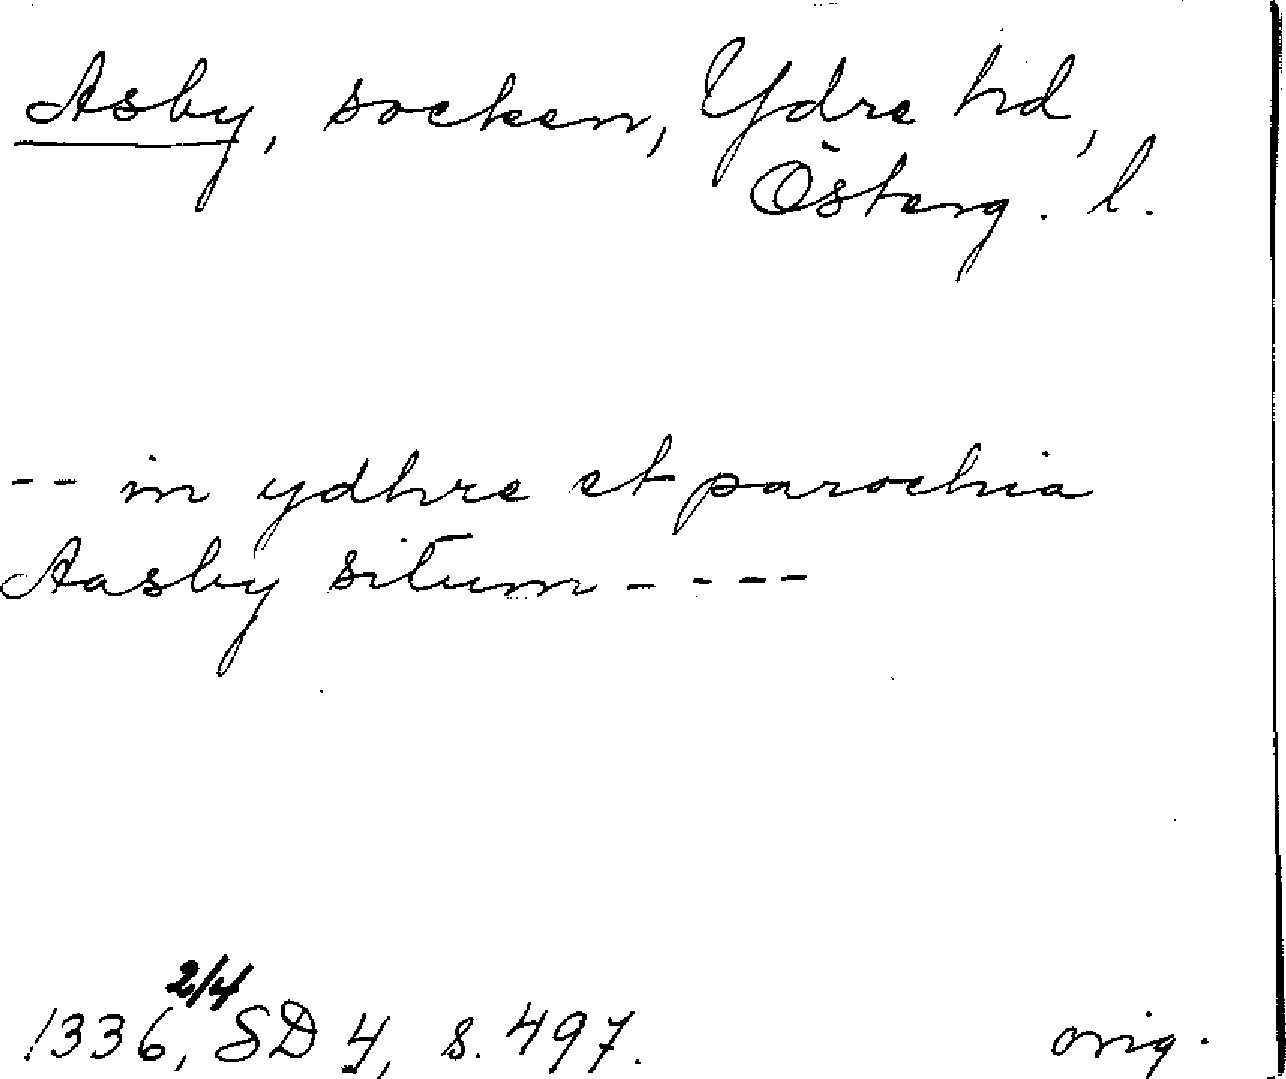 Asby, socken, Ydre hd,
Österg. l.
-- in ydhre et parochia
Aasby situm - - - -
1336, 2/4 SD 4, s. 497. orig.